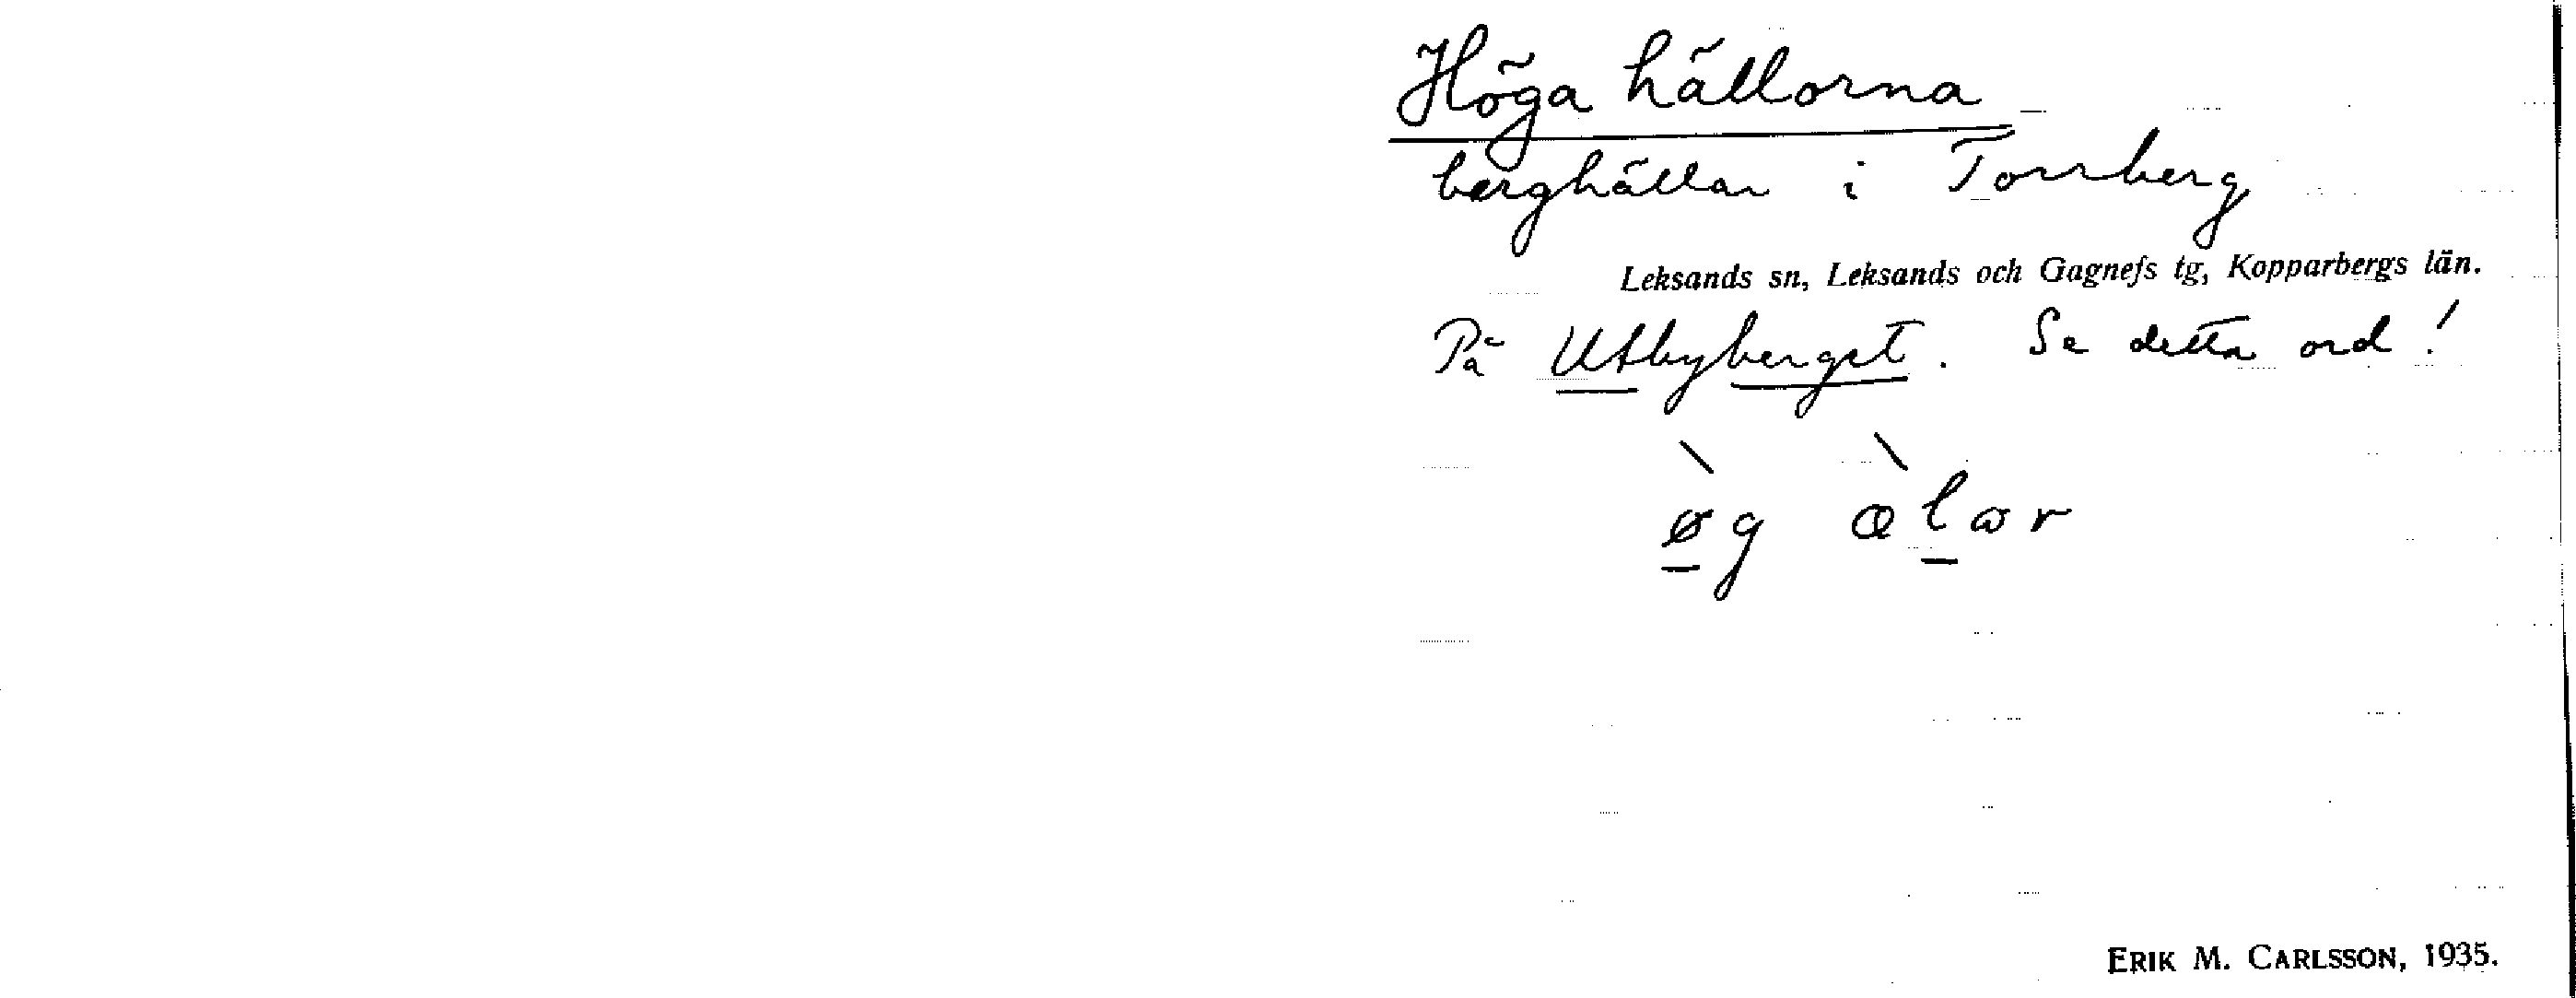 Höga hällorna
berghällar i Torrberg
Leksands sn, Leksands och Gagnefs tg, Kopparbergs län.
På Utbyberget. Se detta ord!
ø̀g æ̀lar
ERIK M. CARLSSON, 1935.